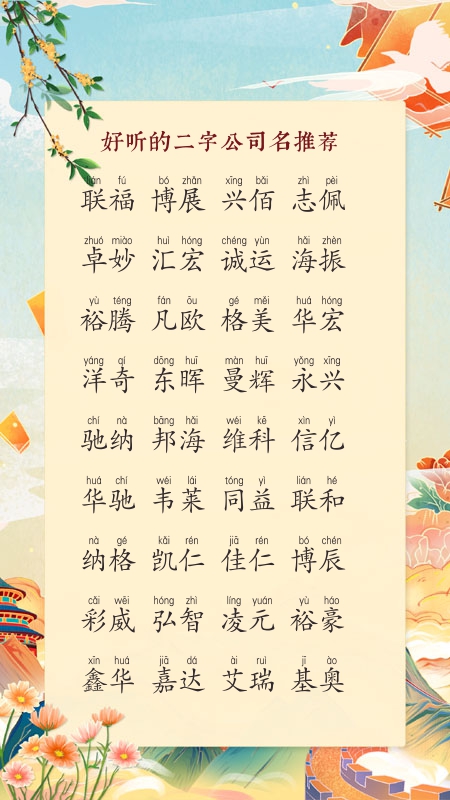 好听的二字公司名推荐
lián fú bó zhǎn xīng bǎi zhì pèi
联福 博展 兴佰 志佩
zhuó miào huì hóng chéng yùn hǎi zhèn
卓妙 汇宏 诚运 海振
yù téng fán ōu gé měi huá hóng
裕腾 凡欧 格美 华宏
yáng qí dōng huī màn huī yǒng xīng
洋奇 东晖 曼辉 永兴
chí nà bāng hǎi wéi kē xìn yì
驰纳 邦海 维科 信亿
huá chí wéi lái tóng yì lián hé
华驰 韦莱 同益 联和
nà gé kǎi rén jiā rén bó chén
纳格 凯仁 佳仁 博辰
cǎi wēi hóng zhì líng yuán yù háo
彩威 弘智 凌元 裕豪
xīn huá jiā dá ài ruì jī ào
鑫华 嘉达 艾瑞 基奥